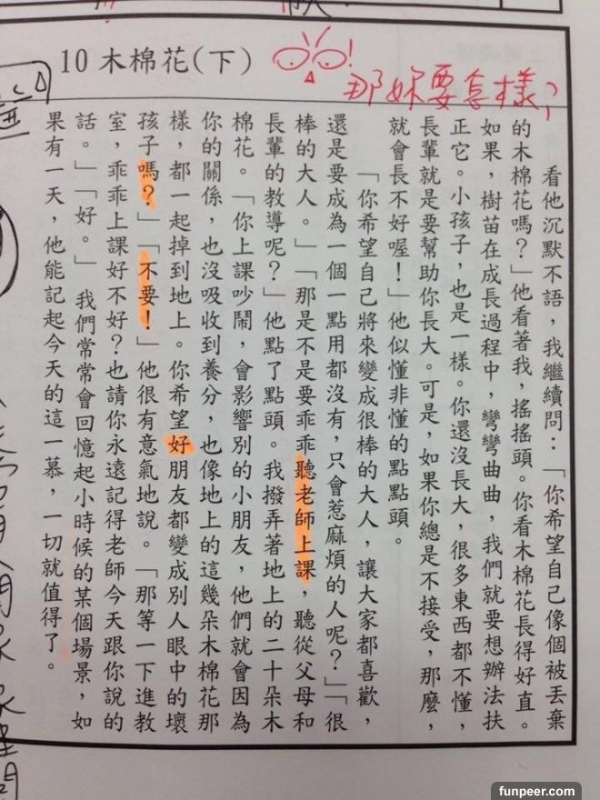 10 木棉花(下)
那妳要怎樣?
看他沉默不語,我繼續問:「你希望自己像個被丟棄
的木棉花嗎?」他看著我,搖搖頭。你看木棉花長得好直。
如果,樹苗在成長過程中,彎彎曲曲,我們就要想辦法扶
正它。小孩子,也是一樣。你還沒長大,很多東西都不懂,
長輩就是要幫助你長大。可是,如果你總是不接受,那麼,
就會長不好喔!」他似懂非懂的點點頭。
「你希望自己將來變成很棒的大人,讓大家都喜歡,
還是要成為一個一點用都沒有,只會惹麻煩的人呢?」「很
棒的大人。」「那是不是要乖乖聽老師上課,聽從父母和
長輩的教導呢?」他點了點頭。我撥弄著地上的二十朵木
棉花。「你上課吵鬧,會影響別的小朋友,他們就會因為
你的關係,也沒吸收到養分,也像地上的這幾朵木棉花那
樣,都一起掉到地上。你希望好朋友都變成別人眼中的壞
孩子嗎?」「不要!」他很有意氣地說。「那等一下進教
室,乖乖上課好不好?也請你永遠記得老師今天跟你說的
話。」「好。」 我們常常會回憶起小時候的某個場景,如
果有一天,他能記起今天的這一幕,一切就值得了。
funpeer.com